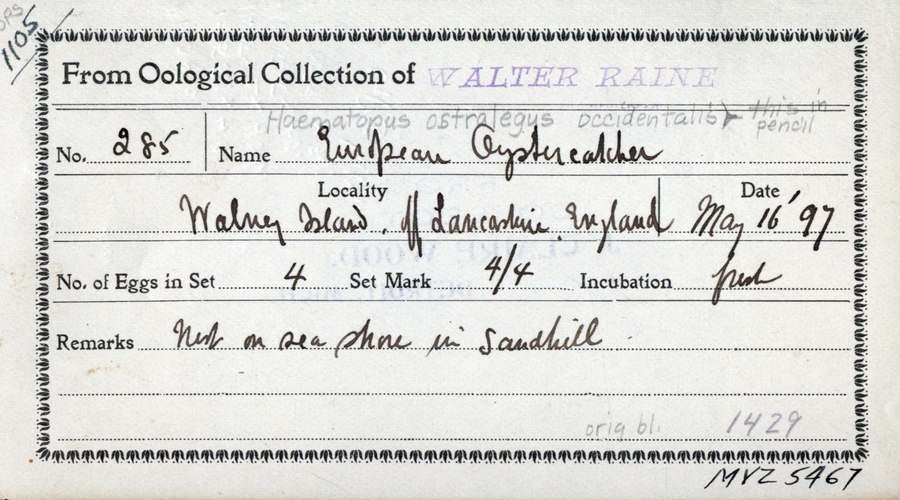 1105
From Oological Collection of WALTER RAINE
Haematopus ostralegus occidentalis this in pencil
No. 285 Name European Oystercatcher
Locality Date
Walney Island. off Lancashire England May 16' 97
No. of Eggs in Set 4 Set Mark 4/4 Incubation fresh
Remarks Nest on sea shore in Sandhill
orig bl. 1429
MVZ 5467